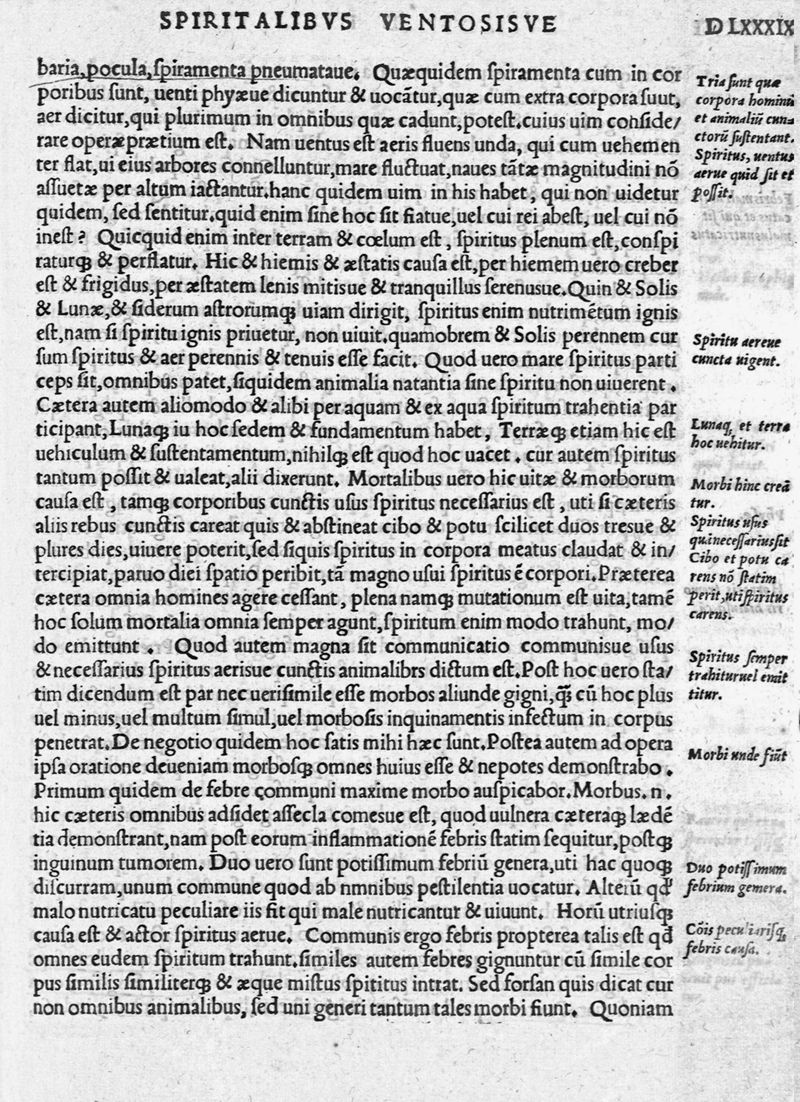 SPIRITALIBVS VENTOSISVE DLXXXIX
baria,pocula,ſpiramenta pneumataue. Quæquidem ſpiramenta cum in cor
poribus ſunt, uenti phyæue dicuntur & uocãtur,quæ cum extra corpora ſuut,
aer dicitur,qui plurimum in omnibus quæ cadunt,poteſt.cuius uim conſide/
rare operæprætium eſt. Nam uentus eſt aeris fluens unda, qui cum uehemen
ter flat,ui eius arbores connelluntur,mare fluctuat,naues tãtæ magnitudini nõ
aſſuetæ per altum iactantur.hanc quidem uim in his habet, qui non uidetur
quidem, ſed ſentitur.quid enim ſine hoc ſit fiatue,uel cui rei abeſt, uel cui nõ
ineſt? Quicquid enim inter terram & cœlum eſt, ſpiritus plenum eſt,conſpi
raturq; & perflatur. Hic & hiemis & æſtatis cauſa eſt,per hiemem uero creber
eſt & frigidus,per æſtatem lenis mitisue & tranquillus ſerenusue.Quin & Solis
& Lunæ,& ſiderum aſtrorumq; uiam dirigit, ſpiritus enim nutrimẽtum ignis
eſt,nam ſi ſpiritu ignis priuetur, non uiuit.quamobrem & Solis perennem cur
ſum ſpiritus & aer perennis & tenuis eſſe facit. Quod uero mare ſpiritus parti
ceps ſit,omnibus patet,ſiquidem animalia natantia ſine ſpiritu non uiuerent.
Cætera autem aliomodo & alibi per aquam & ex aqua ſpiritum trahentia par
ticipant,Lunaq; iu hoc ſedem & fundamentum habet, Terræq; etiam hic eſt
uehiculum & ſuſtentamentum,nihilq; eſt quod hoc uacet. cur autem ſpiritus
tantum poſſit & ualeat,alii dixerunt. Mortalibus uero hic uitæ & morborum
cauſa eſt, tamq; corporibus cunctis uſus ſpiritus neceſſarius eſt, uti ſi cæteris
aliis rebus cunctis careat quis & abſtineat cibo & potu ſcilicet duos tresue &
plures dies,uiuere poterit,ſed ſiquis ſpiritus in corpora meatus claudat & in/
tercipiat,paruo diei ſpatio peribit,tã magno uſui ſpiritus ẽ corpori.Præterea
cætera omnia homines agere ceſſant, plena namq; mutationum eſt uita,tamẽ
hoc ſolum mortalia omnia ſemper agunt,ſpiritum enim modo trahunt, mo/
do emittunt. Quod autem magna ſit communicatio communisue uſus
& neceſſarius ſpiritus aerisue cunctis animalibrs dictum eſt.Poſt hoc uero ſta/
tim dicendum eſt par nec ueriſimile eſſe morbos aliunde gigni,q̃; cũ hoc plus
uel minus,uel multum ſimul,uel morboſis inquinamentis infectum in corpus
penetrat.De negotio quidem hoc ſatis mihi hæc ſunt.Poſtea autem ad opera
ipſa oratione deueniam morboſq; omnes huius eſſe & nepotes demonſtrabo.
Primum quidem de febre communi maxime morbo auſpicabor.Morbus. n.
hic cæteris omnibus adſidet aſſecla comesue eſt, quod uulnera cæteraq; lædẽ
tia demonſtrant,nam poſt eorum inflammationẽ febris ſtatim ſequitur,poſtq;
inguinum tumorem. Duo uero ſunt potiſſimum febriũ genera,uti hac quoq;
diſcurram,unum commune quod ab nmnibus peſtilentia uocatur. Alterũ qď
malo nutricatu peculiare iis ſit qui male nutricantur & uiuunt. Horũ utriuſq;
cauſa eſt & actor ſpiritus aerue. Communis ergo febris propterea talis eſt qď
omnes eudem ſpiritum trahunt.ſimiles autem febres gignuntur cũ ſimile cor
pus ſimilis ſimiliterq; & æque miſtus ſpititus intrat. Sed forſan quis dicat cur
non omnibus animalibus, ſed uni generi tantum tales morbi fiunt. Quoniam
Tria ſunt quæ
corpora hominũ
et animaliũ cun⁊
ctorũ ſuſtentant.
Spiritus, uentus
aerue quid ſit et
poſſit.
Spiritu aereue
cuncta uigent.
Lunaq; et terra
hoc uehitur.
Morbi hinc creã
tur.
Spiritus uſus
quã neceſſarius ſit
Cibo et potu ca
rens nõ ſtatim
perit, uti ſpiritus
carens.
Spiritus ſemper
trahitur uel emit
titur.
Morbi unde fiũt
Duo potiſſimum
febrium gemera.
Cõis peculiariſq;
febris cauſa.